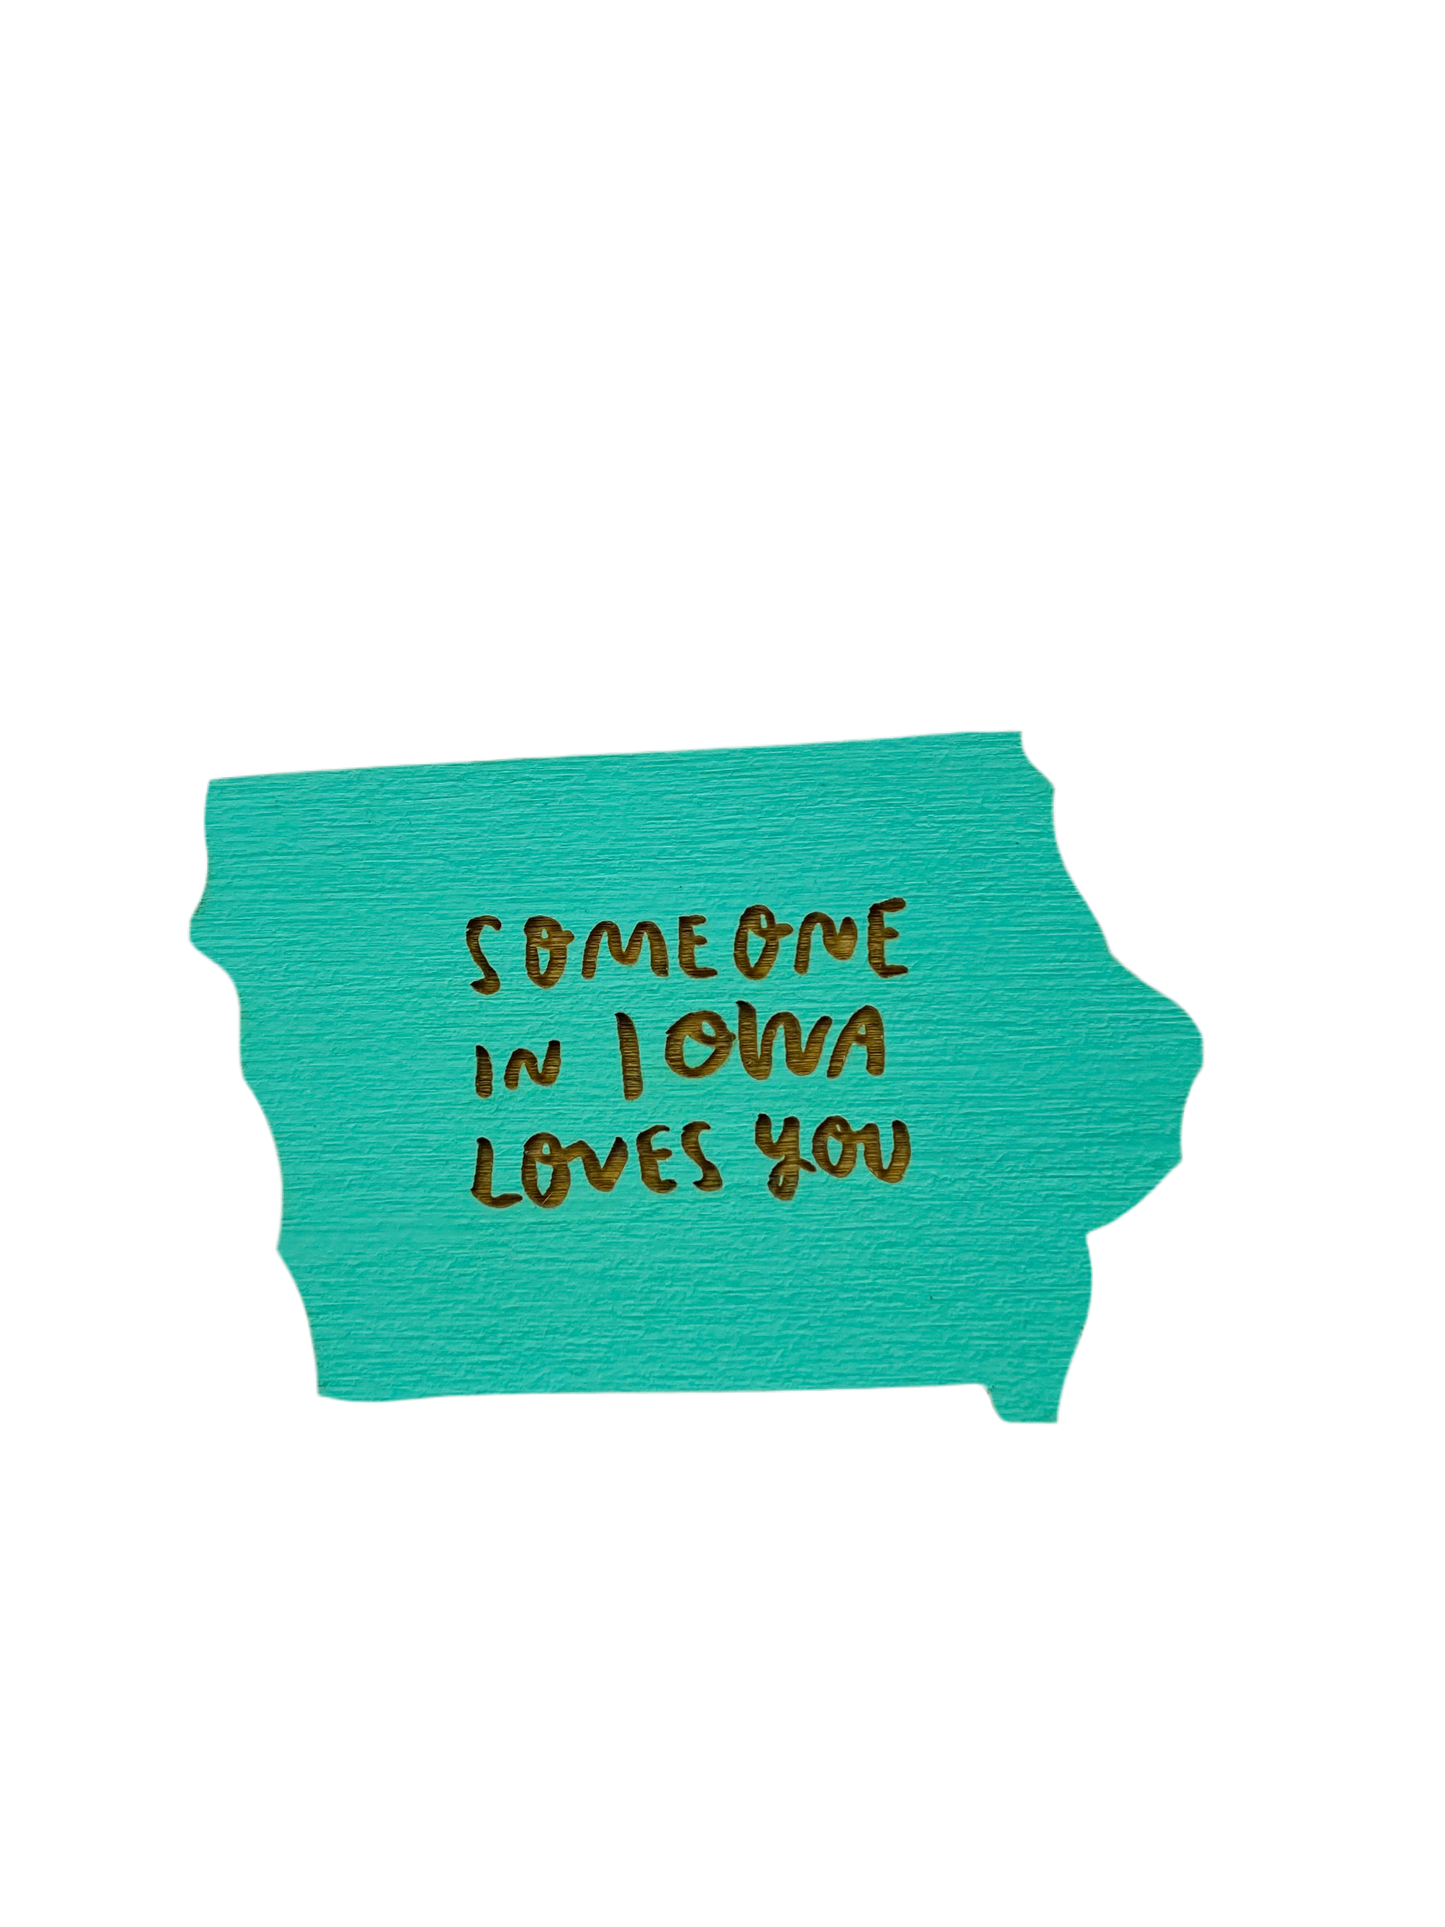 SOMEONE
IN IOWA
LOVES YOU